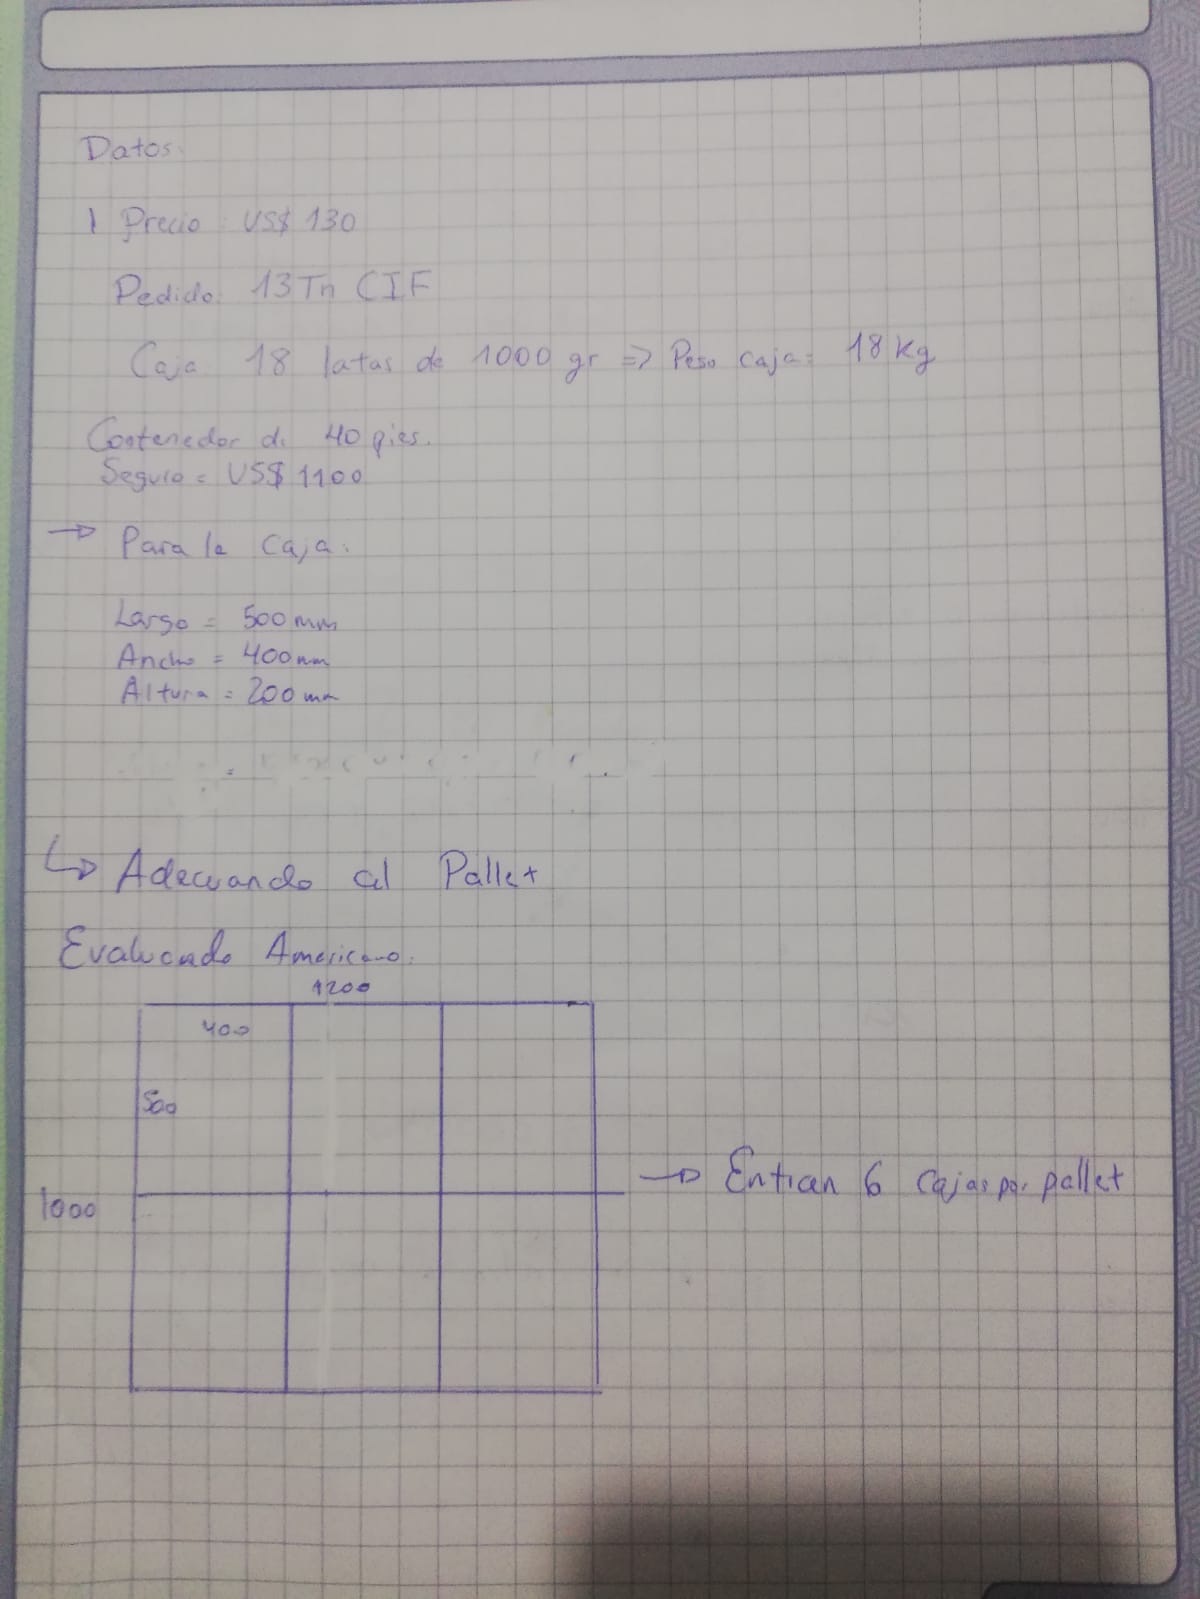 Datos.
1 Precio : US$ 130
Pedido: 13Tn CIF
Caja 18 latas de 1000 gr => Peso caja= 18 Kg
Contenedor de 40 pies.
Seguro = US$ 1100
→ Para la caja:
Largo = 500mm
Ancho = 400mm
Altura = 200mm
↳ Adecuando al Pallet
Evaluando Americano.
1200
400
500
→ Entran 6 cajas por pallet
1000